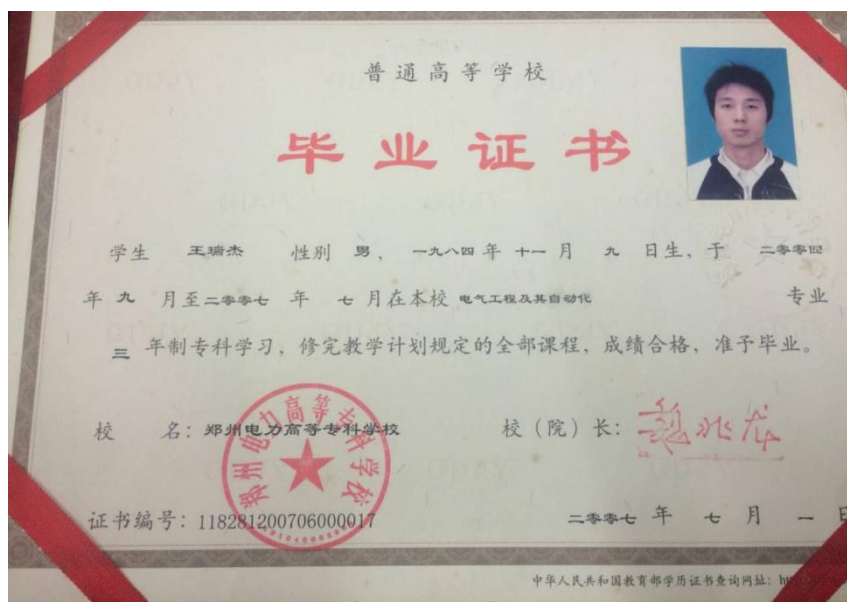 普通高等学校
毕业证书
学生 王瑞杰 性别 男， 一九八四 年 十一 月 九 日生，于 二零零四
年 九 月至 二零零七 年 七 月在本校 电气工程及其自动化 专业
三 年制专科学习，修完教学计划规定的全部课程，成绩合格，准予毕业。
校 名：郑州电力高等专科学校 校（院）长：
郑州电力高等专科学校
证书编号：118281200706000017 二零零七 年 七 月 一 日
中华人民共和国教育部学历证书查询网址：